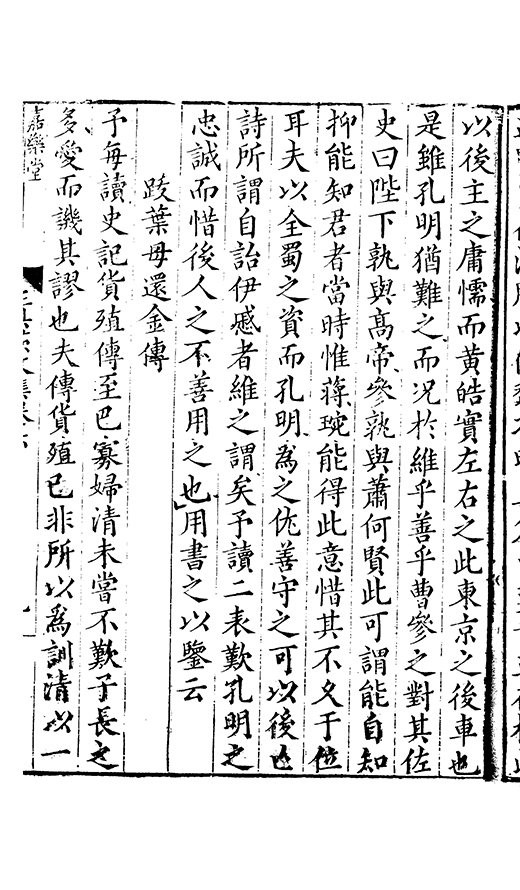 以後主之庸懦而黃皓實左右之此東京之後車也
是雖孔明猶難之而况於維乎善乎曹參之對其佐
史曰陛下孰與髙帝參孰與蕭何賢此可謂能自知
抑能知君者當時惟蔣琬能得此意惜其不久于位
耳夫以全蜀之資而孔明為之佐善守之可以後亡
詩所謂自詒伊慼者維之謂矣予讀二表歎孔明之
忠誠而惜後人之不善用之也用書之以鑒云
跋葉母還金傳
予每讀史記貨殖傳至巴寡婦清未嘗不歎子長之
多愛而譏其謬也夫傳貨殖已非所以為訓清以一
嘉樂堂